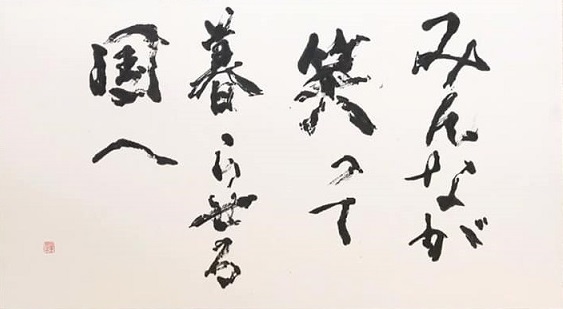 みんなが
笑って
暮らせる
国へ